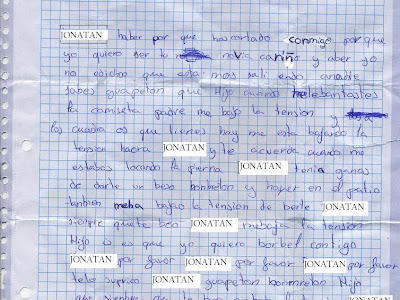 JONATAN haber por que hascortado conmigo por que
yo quiero ser tu novia cariño y aber yo
no edicho que esta mos sali endo anadie
sabes guapeton que Hijo cuando telebantastes
la camiseta padre me bajo la tension y
los cuadra os que tienes hay me esta bajando la
tension haora JONATAN y te acuerda cuando me
estabas tocando la pierna JONATAN tenia ganas
de darte un beso bonbelon y haper en el patio
tanbien meha bajao la tension de berte JONATAN
siempre quete beo JONATAN mebaja la tension
Hijo es que yo quiero borbel contigo
JONATAN por favor JONATAN por favor JONATAN por favor
telo suprico JONATAN guapeton bonmrelon Hijo
que siempre que te